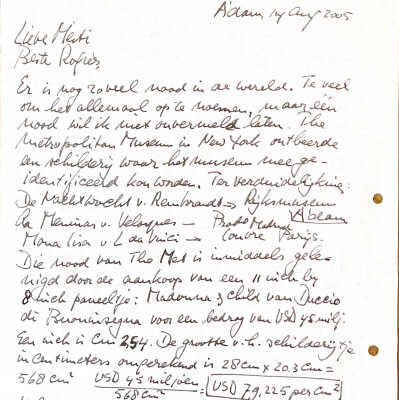 A'dam 14 Aug 2005
Lieve Marti
Beste Rogier
Er is nog zoveel nood in de wereld. Te veel
om het allemaal op te noemen, maar één
nood wil ik niet onvermeld laten. The
Metropolitan Museum in New York ontbeerde
een schilderij waar het museum mee ge-
identificeerd kon worden. Ter verduidelijking:
De Nachtwacht v. Rembrandt → Rijksmuseum
A'dam
La Meninas v. Velasques → Prado Madrid
Mona Lisa v. L da Vinci → Louvre Parijs.
Die nood van The Met is inmiddels gele-
nigd door de aankoop van een 11 inch by
8 inch paneeltje: Madonna & child van Duccio
di Buoninsegna voor een bedrag van USD 45 milj.
Een inch is cm 2.54. De grootte v.h. schilderijtje
in centimeters omgerekend is 28 cm x 20.3 cm =
568 cm² USD 45 miljoen = USD 79,225 per cm²
568 cm²